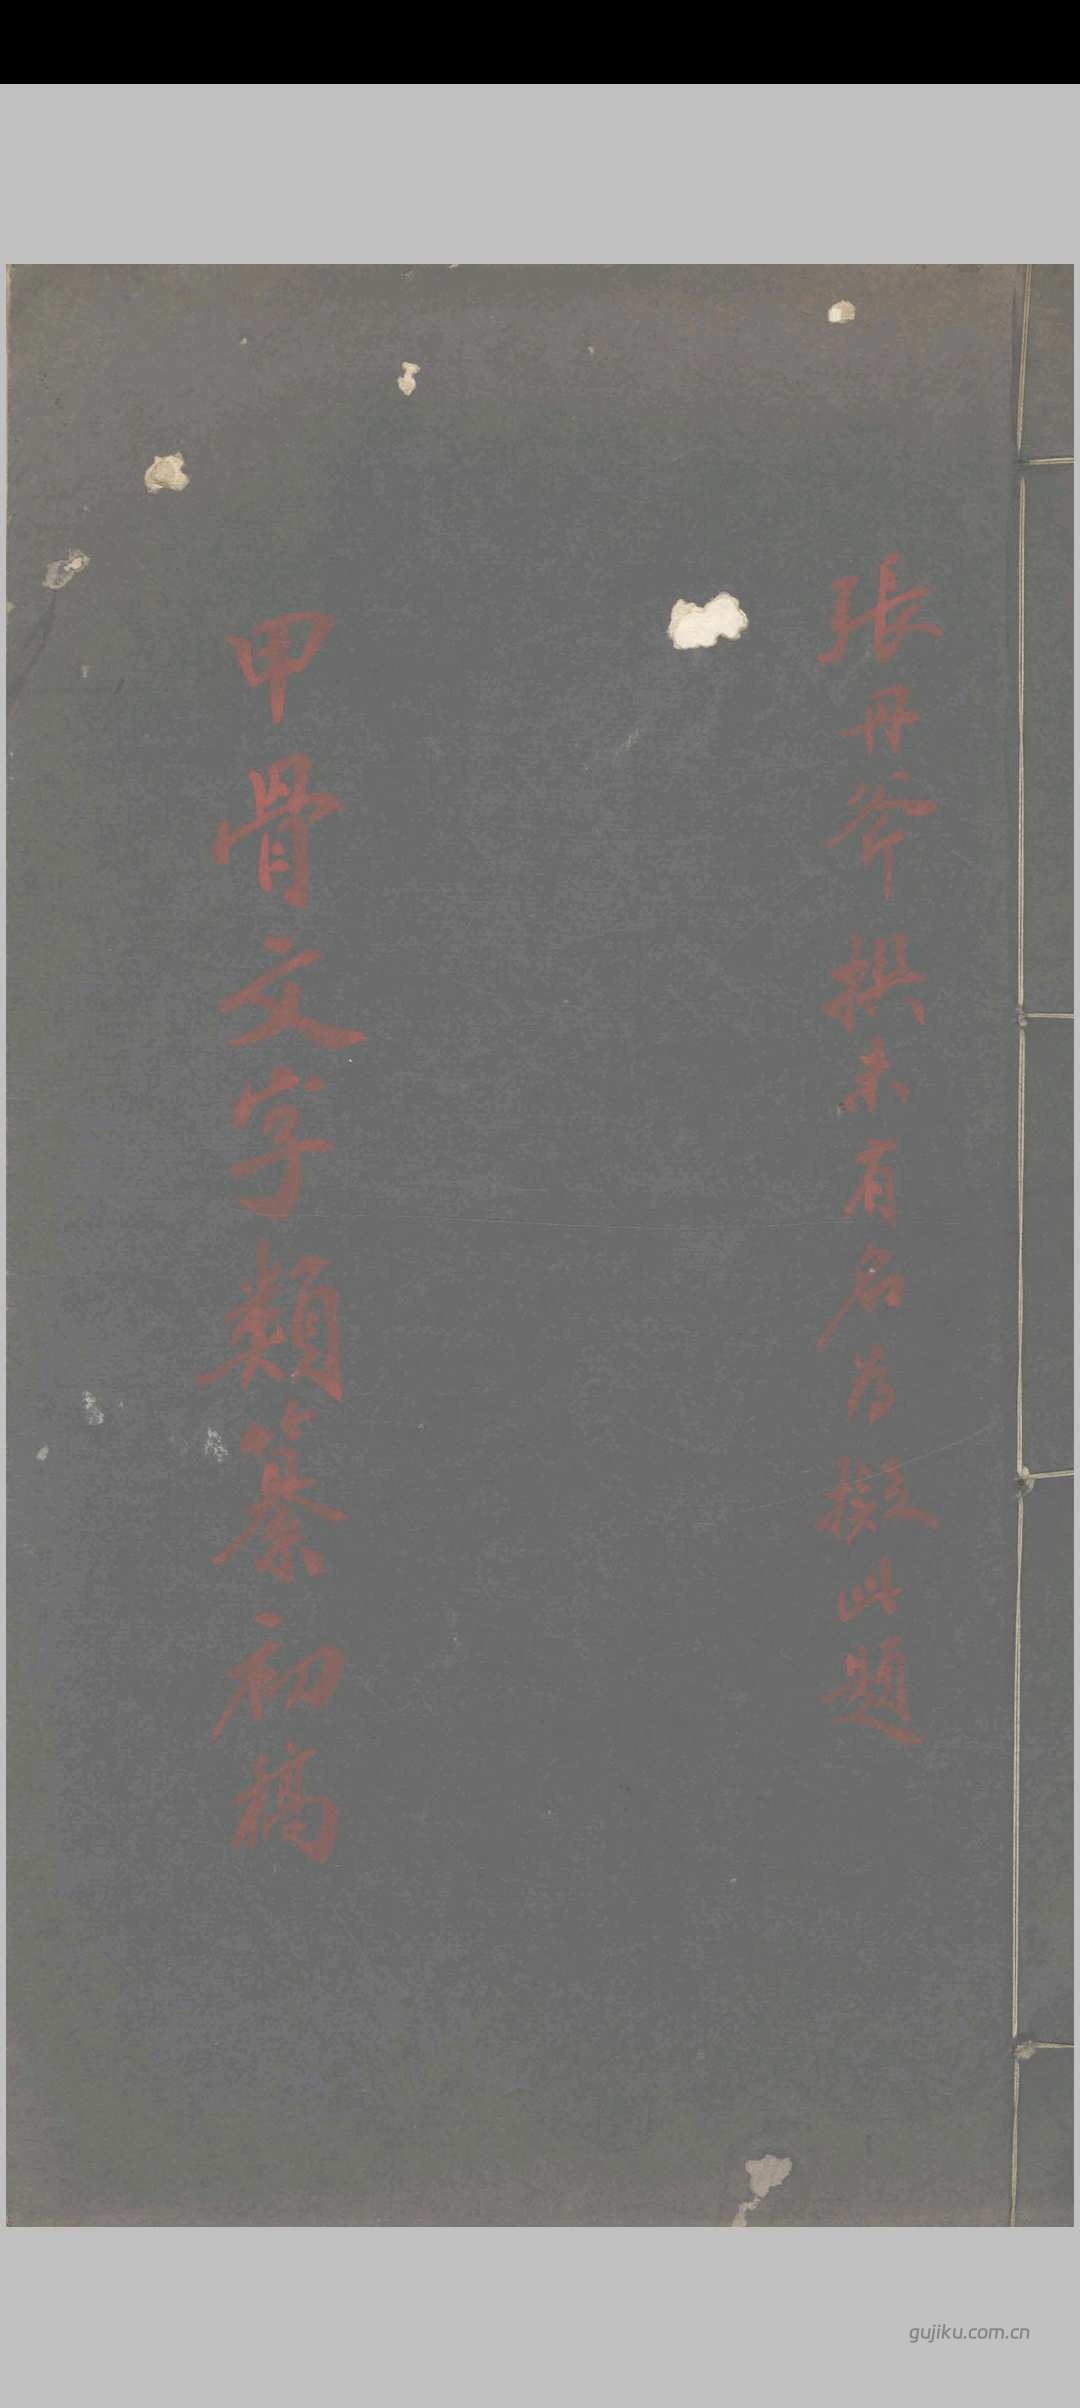 張丹斧撰未有名為擬此題
甲骨文字類纂初稿
gujiku.com.cn